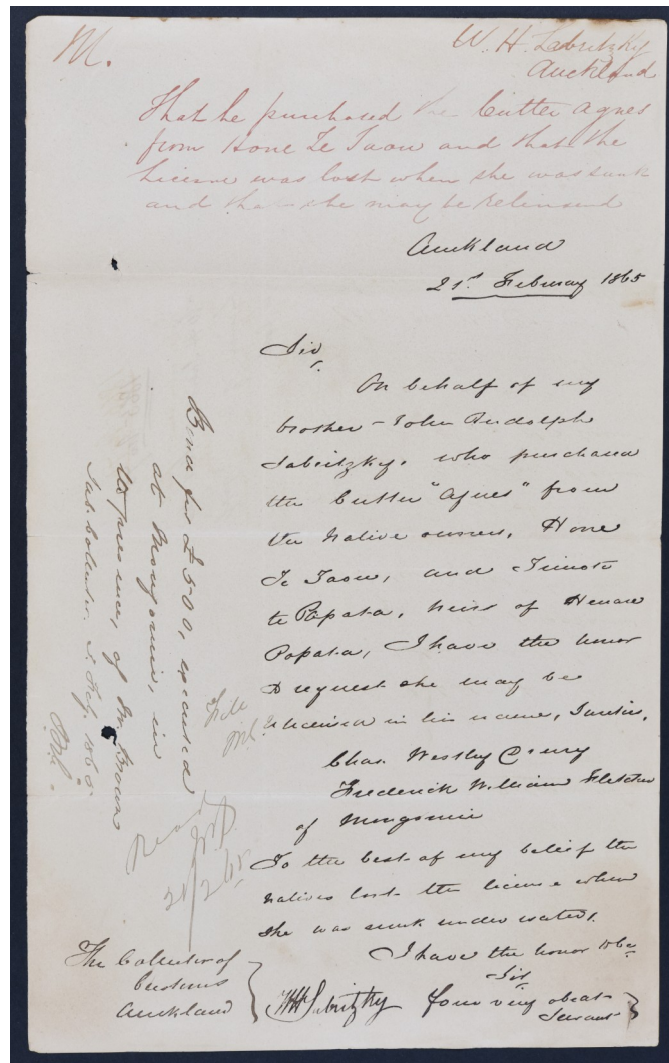 M.
W. H. Labritzky
Auckland
That he purchased the Cutter Agnes
from Hone Te Taou and that the
license was lost when she was sunk
and that she may be Relicensed
Auckland
21st February 1865
Sir,
On behalf of my
brother - John Rudolph
Subritzky. who purchased
the Cutter "Agnes" from
the Native owners, Hone
Te Taou, and Timoti
te Papata, heirs of Henare
Papata, I have the honor
to request she may be
licensed in his name, Sureties,
Chas. Westley
Frederick William Fletcher
of Mongonui
To the best of my belief the
natives lost the license when
she was sunk under water.
I have the honor to be
Sir
Your very obedt
Servant
WH Subritzky
The Collector of
Customs
Auckland
Bond for £500, executed
at Mongonui, in
the presence of Mr Brown
Sub. Collector, 2. Feby. 1865.
File
Read
21/2/65